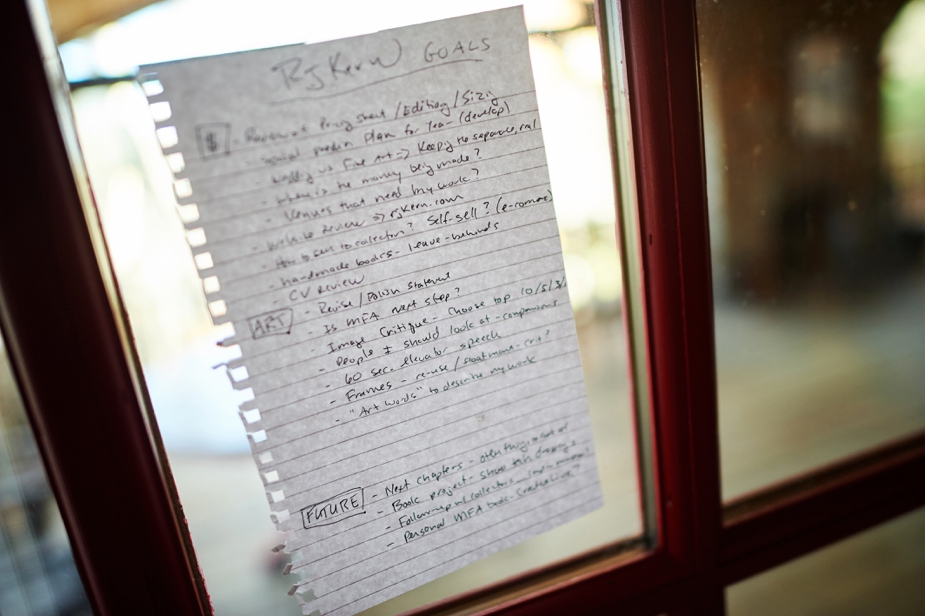 RJ Kern GOALS
$ - Pricing sheet / Editing / Sizing
social media Plan for Year (develop)
vs Fine Art => Keeping the separate,
- Where is the money being made?
- Venues that need my work?
- to Review => rjkern.com
- How to sell to collectors? Self-sell? (e-commerce)
- handmade books - leave-behinds
CV REVIEW
ART - Revise / Polish Statement
- Is MFA next step?
- Image Critique - Choose top 10/5/3/1
- People I should look at - comparisons
- 60 sec. elevator speech
- Frames - re-use / - crit?
- "Art words" to describe my work
FUTURE - Next chapters - other things
- Book project -
- Follow-up w/ collectors
- Personal MFA